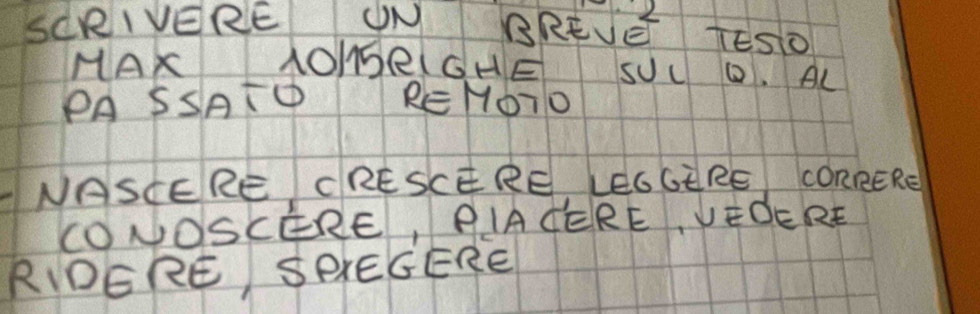 SCRIVERE UN BREVE TESTO
MAX 10/15 RIGHE SUL Q. AL
PASSATO REMOTO
- NASCERE, CRESCERE LEGGERE, CORRERE
CONOSCERE, PIACERE, VEDERE
RIDERE, SPEGERE